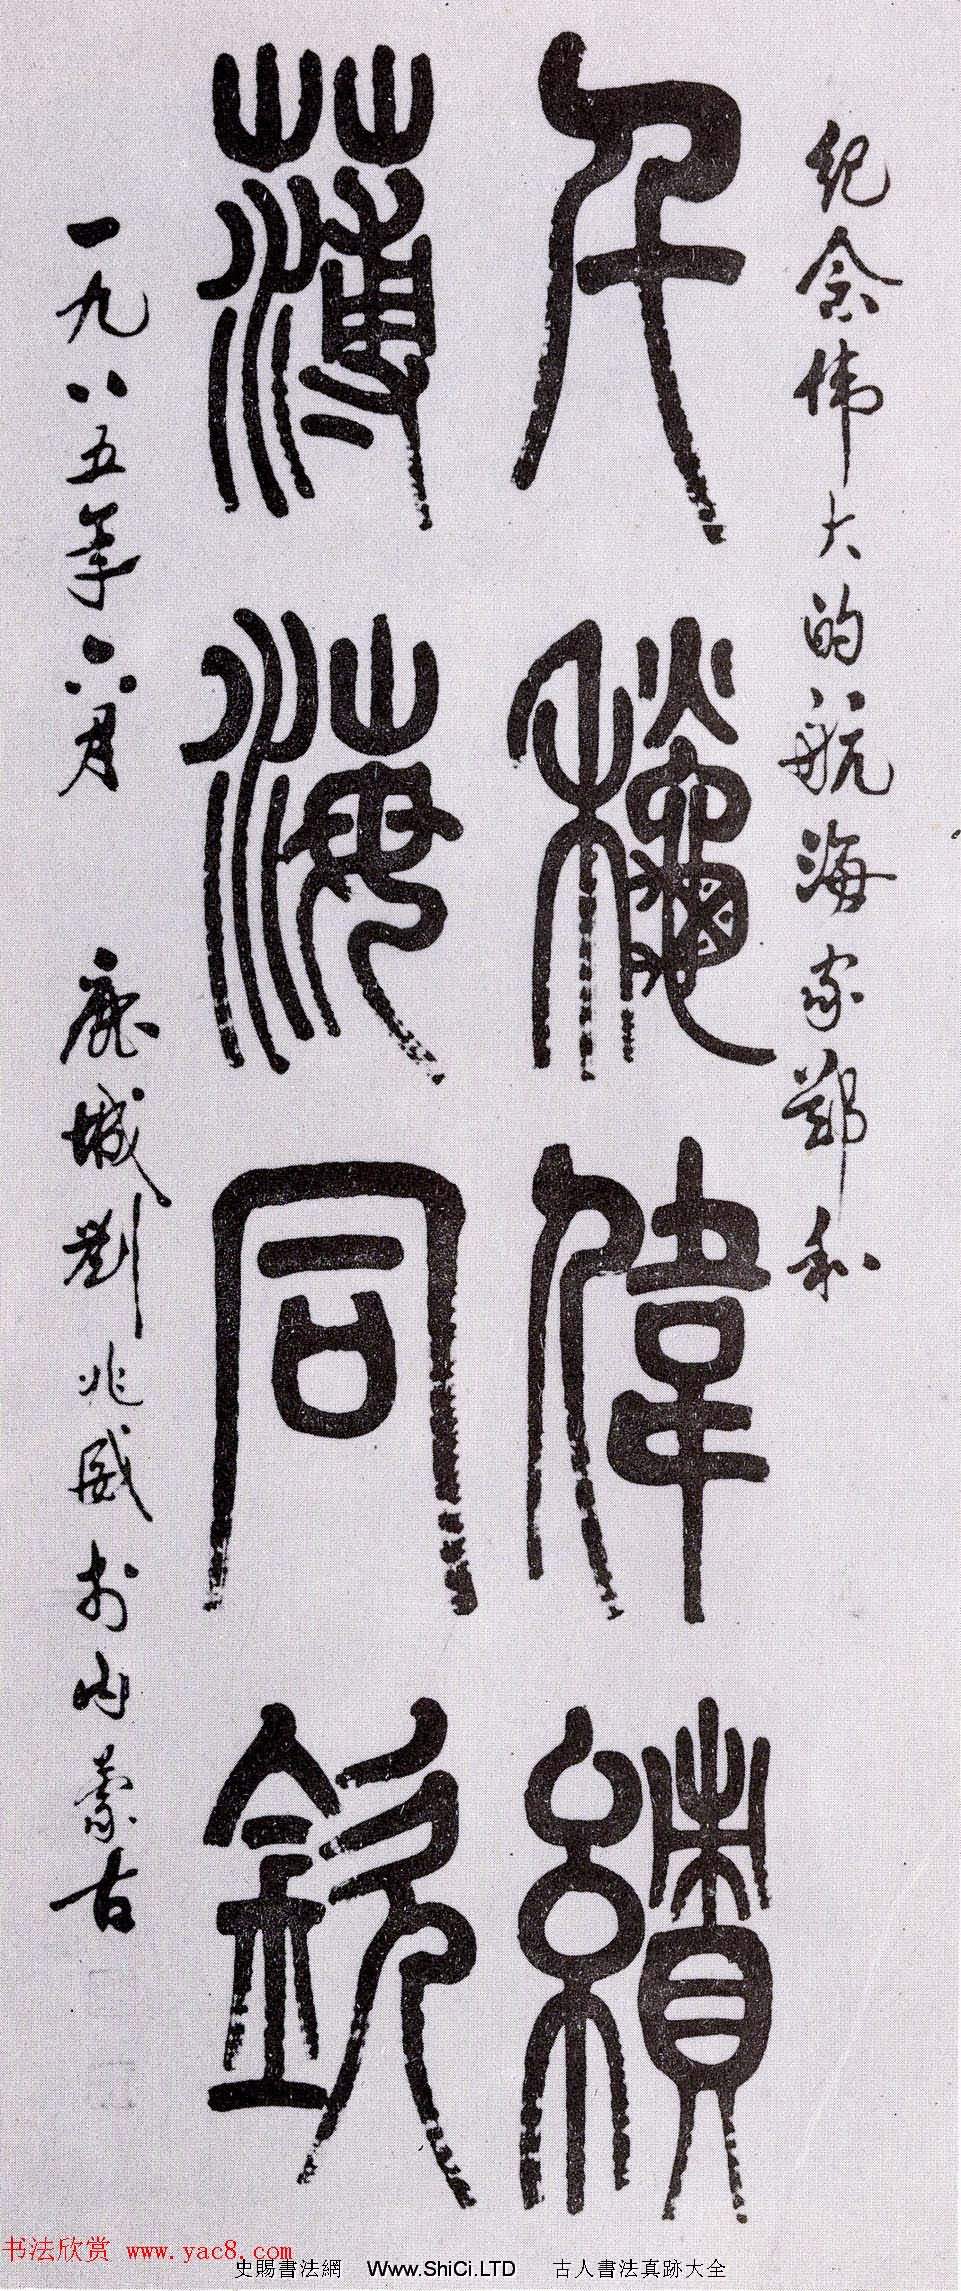 纪念伟大的航海家郑和
千穐偉績
薄海同欽
一九八五年六月 鹿城劉兆威於内蒙古
书法欣赏 www.yac8.com
史賜書法網 Www.ShiCi.LTD 古人書法真跡大全